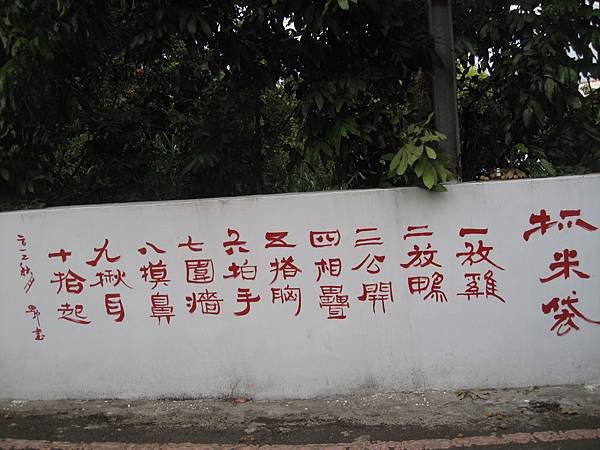 抓米袋
一放雞
二放鴨
三公開
四相疊
五搭胸
六拍手
七圍墻
八摸鼻
九揪耳
十拾起